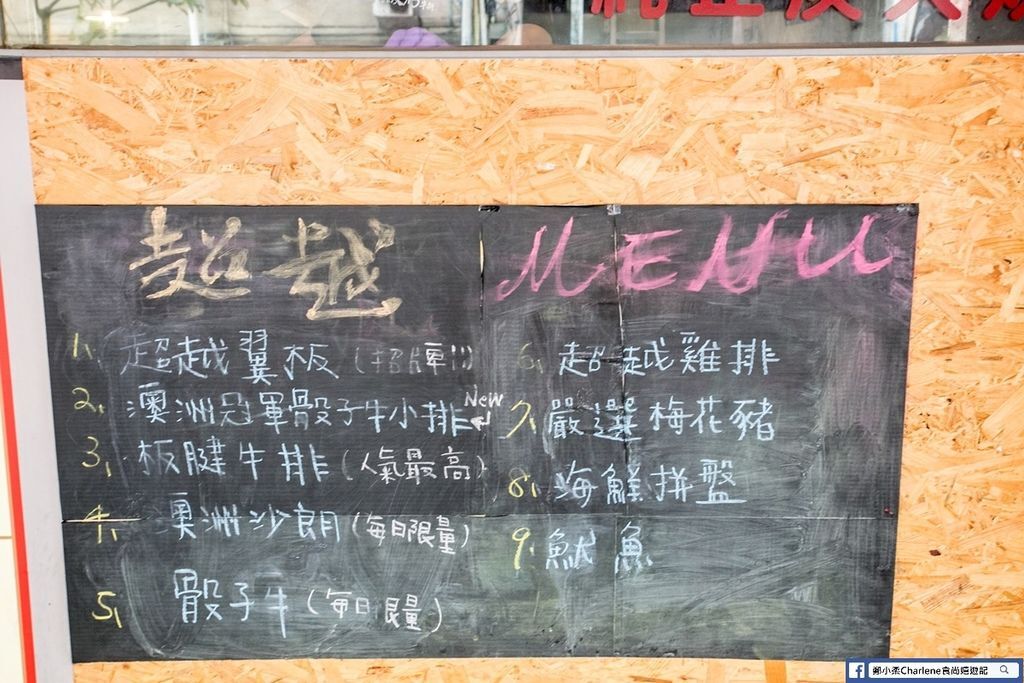 超越 MENU
1. 超越翼板(招牌!!)
2. 澳洲冠軍骰子牛小排 New
3. 板腱牛排(人氣最高)
4. 澳洲沙朗(每日限量)
5. 骰子牛(每日限量)
6. 超越雞排
7. 嚴選梅花豬
8. 海鮮拼盤
9. 魷魚
鄭小柔Charlene食尚嬉遊記